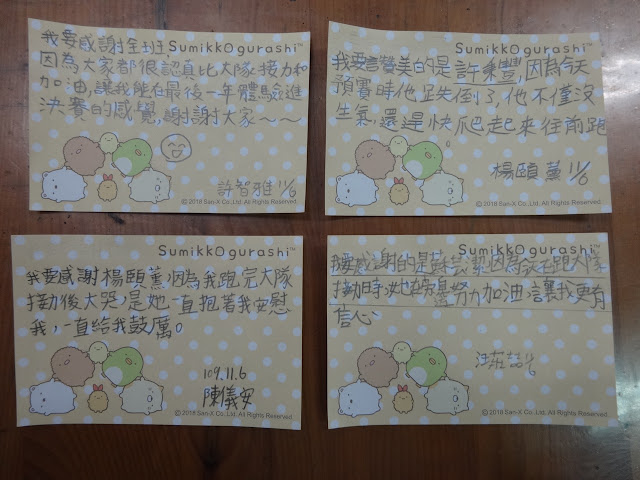 我要感謝全班Sumikkogurashi™
因為大家都很認真比大隊接力和
加油,讓我能在最後一年體驗進
決賽的感覺,謝謝大家~~
許智雅 11/6
© 2018 San-X Co., Ltd. All Rights Reserved.
Sumikkogurashi™
我要言贊美的是許秉豐,因為今天
預賽時他跌倒了,他不僅沒
生氣,還是快爬起來往前跑
楊頤薰 11/6
© 2018 San-X Co., Ltd. All Rights Reserved.
Sumikkogurashi™
我要感謝楊頤薰,因為我跑完大隊
接力後大哭,是她一直抱著我安慰
我,一直給我鼓厲。
109.11.6
陳儀安
© 2018 San-X Co., Ltd. All Rights Reserved.
Sumikkogurashi™
我要感謝的是 因為今天跑大隊
接力時,她 努力加油,讓我更有
信心、
汪莊喆 11/6
© 2018 San-X Co., Ltd. All Rights Reserved.